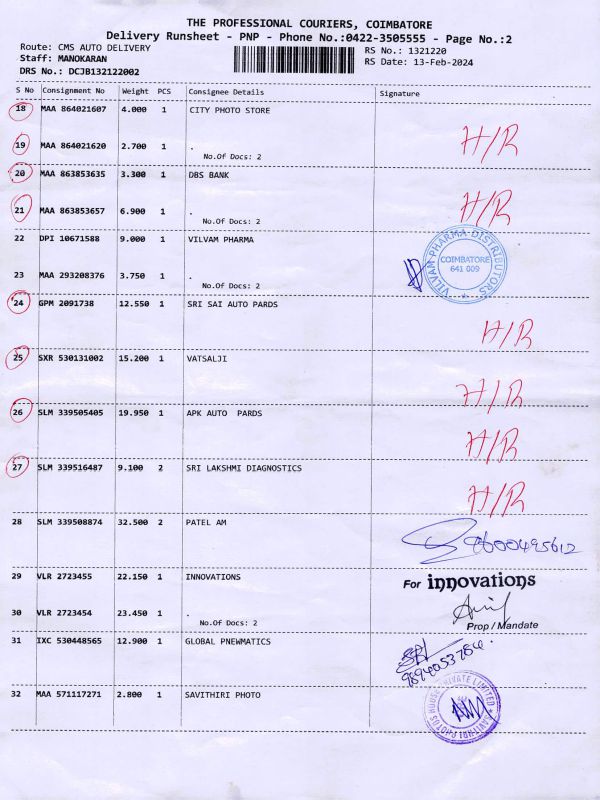 THE PROFESSIONAL COURIERS, COIMBATORE
Delivery Runsheet - PNP - Phone No.:0422-3505555 - Page No.:2
Route: CMS AUTO DELIVERY RS No.: 1321220
Staff: MANOKARAN RS Date: 13-Feb-2024
DRS No.: DCJB132122002
S No Consignment No Weight PCS Consignee Details Signature
18 MAA 864021607 4.000 1 CITY PHOTO STORE
H/R
19 MAA 864021620 2.700 1 .
No.Of Docs: 2
20 MAA 863853635 3.300 1 DBS BANK
H/R
21 MAA 863853657 6.900 1 .
No.Of Docs: 2
22 DPI 10671588 9.000 1 VILVAM PHARMA
VILVAM PHARMA DISTRIBUTORS
COIMBATORE
641 009
23 MAA 293208376 3.750 1 .
No.Of Docs: 2
24 GPM 2091738 12.550 1 SRI SAI AUTO PARDS
H/R
25 SXR 530131002 15.200 1 VATSALJI
H/R
26 SLM 339505405 19.950 1 APK AUTO PARDS
H/R
27 SLM 339516487 9.100 2 SRI LAKSHMI DIAGNOSTICS
H/R
28 SLM 339508874 32.500 2 PATEL AM
9600495612
29 VLR 2723455 22.150 1 INNOVATIONS
For innovations
30 VLR 2723454 23.450 1 .
No.Of Docs: 2
Prop / Mandate
31 IXC 530448565 12.900 1 GLOBAL PNEWMATICS
9894053784
32 MAA 571117271 2.800 1 SAVITHIRI PHOTO
SAVITHRI PHOTOS HOUSE PRIVATE LIMITED